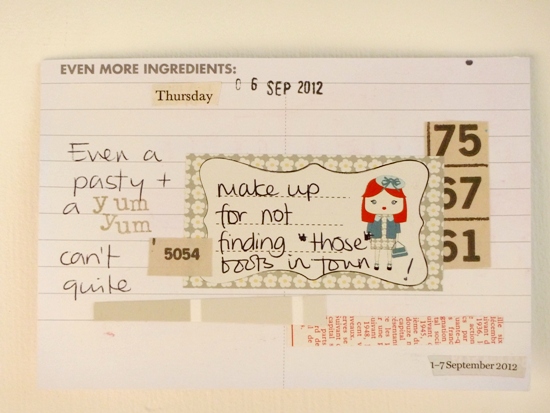 EVEN MORE INGREDIENTS:
Thursday
06 SEP 2012
Even a
pasty +
a yum
yum
can't
quite
5054
make up
for not
finding "those"
boots in town!
75
67
61
1-7 September 2012